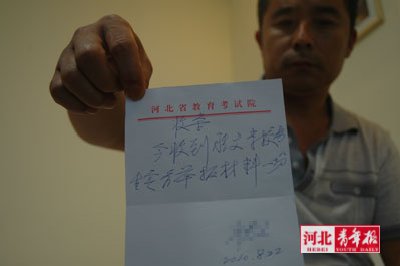 河北省教育考试院
收条
今收到历史专接
举报材料一份
2010.8.22
河北青年报
HEBEI YOUTH DAILY